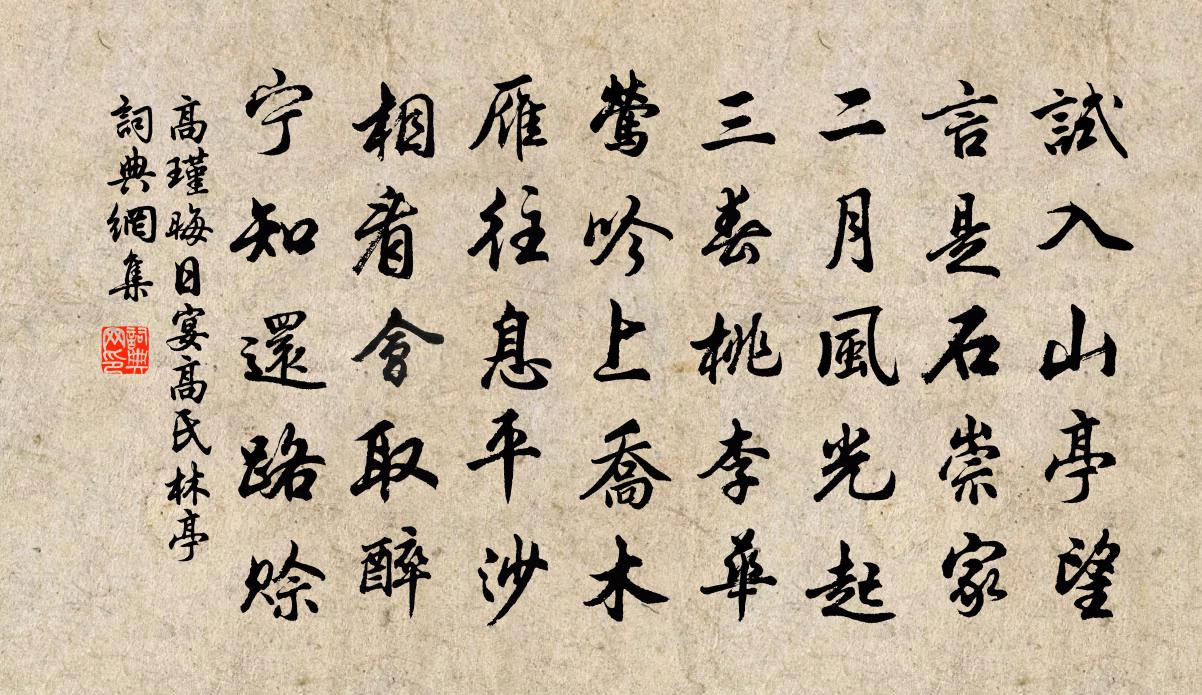 試入山亭望
言是石崇家
二月風光起
三春桃李華
鶯吟上喬木
雁往息平沙
相看會取醉
宁知還路賒
高瑾晦日宴高氏林亭
詞典網集
詞典网印